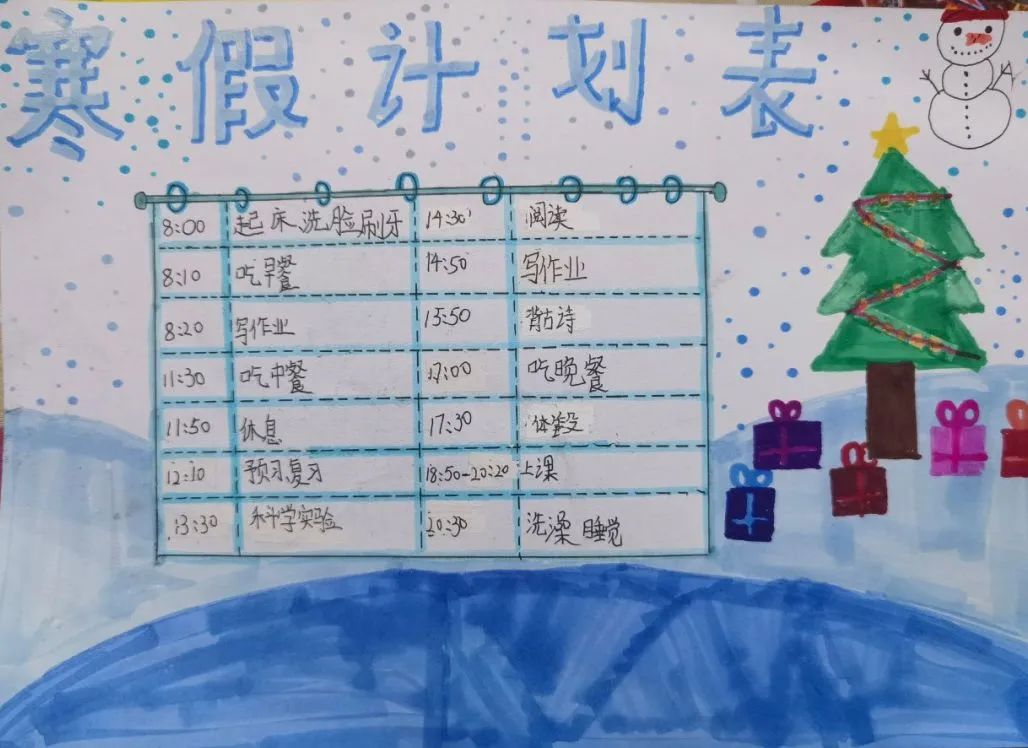 寒假计划表
8:00 起床、洗脸刷牙 14:30 阅读
8:10 吃早餐 14:50 写作业
8:20 写作业 15:50 背古诗
11:30 吃中餐 17:00 吃晚餐
11:50 休息 17:30 体
12:10 预习复习 18:50-20:20 上课
13:30 科学实验 20:30 洗澡 睡觉